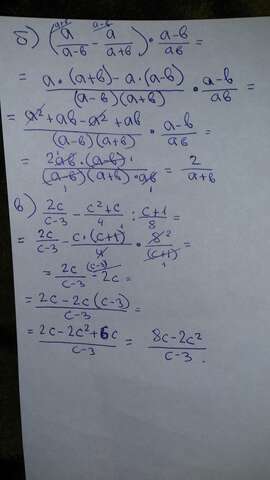 б) (a/(a-b) - a/(a+b)) · (a-b)/(ab) =
= (a·(a+b) - a·(a-b))/((a-b)(a+b)) · (a-b)/(ab) =
= (a²+ab-a²+ab)/((a-b)(a+b)) · (a-b)/(ab) =
= (2ab·(a-b))/((a-b)(a+b)·ab) = 2/(a+b)
в) 2c/(c-3) - (c²+c)/4 : (c+1)/8 =
= 2c/(c-3) - (c·(c+1))/4 · 8/(c+1) =
= 2c/(c-3) - 2c =
= (2c-2c(c-3))/(c-3) =
= (2c-2c²+6c)/(c-3) = (8c-2c²)/(c-3) .